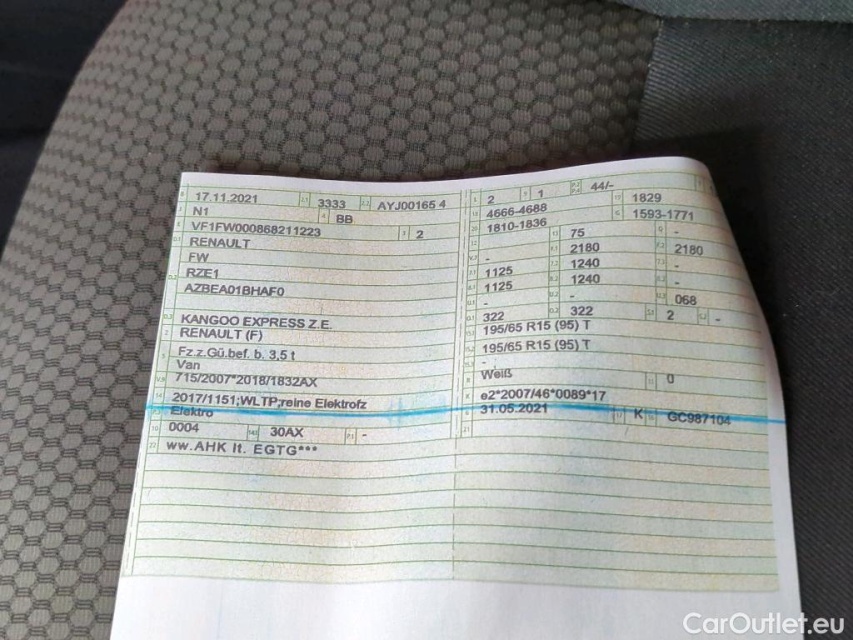 17.11.2021 3333 AYJ00165 4
N1 BB
VF1FW000868211223 2
RENAULT
FW
RZE1
AZBEA01BHAF0
KANGOO EXPRESS Z.E.
RENAULT (F)
Fz.z.Gü.bef. b. 3,5 t
Van
715/2007*2018/1832AX
2017/1151;WLTP;reine Elektrofz
Elektro
0004 30AX -
ww.AHK lt. EGTG***
2 1 44/-
4666-4688 1829
1810-1836 1593-1771
75 -
- 2180 2180
1125 1240 -
1125 1240 -
- - 068
322 322 2 -
195/65 R15 (95) T
195/65 R15 (95) T
-
Weiß 0
e2*2007/46*0089*17
31.05.2021 K GC987104
CarOutlet.eu